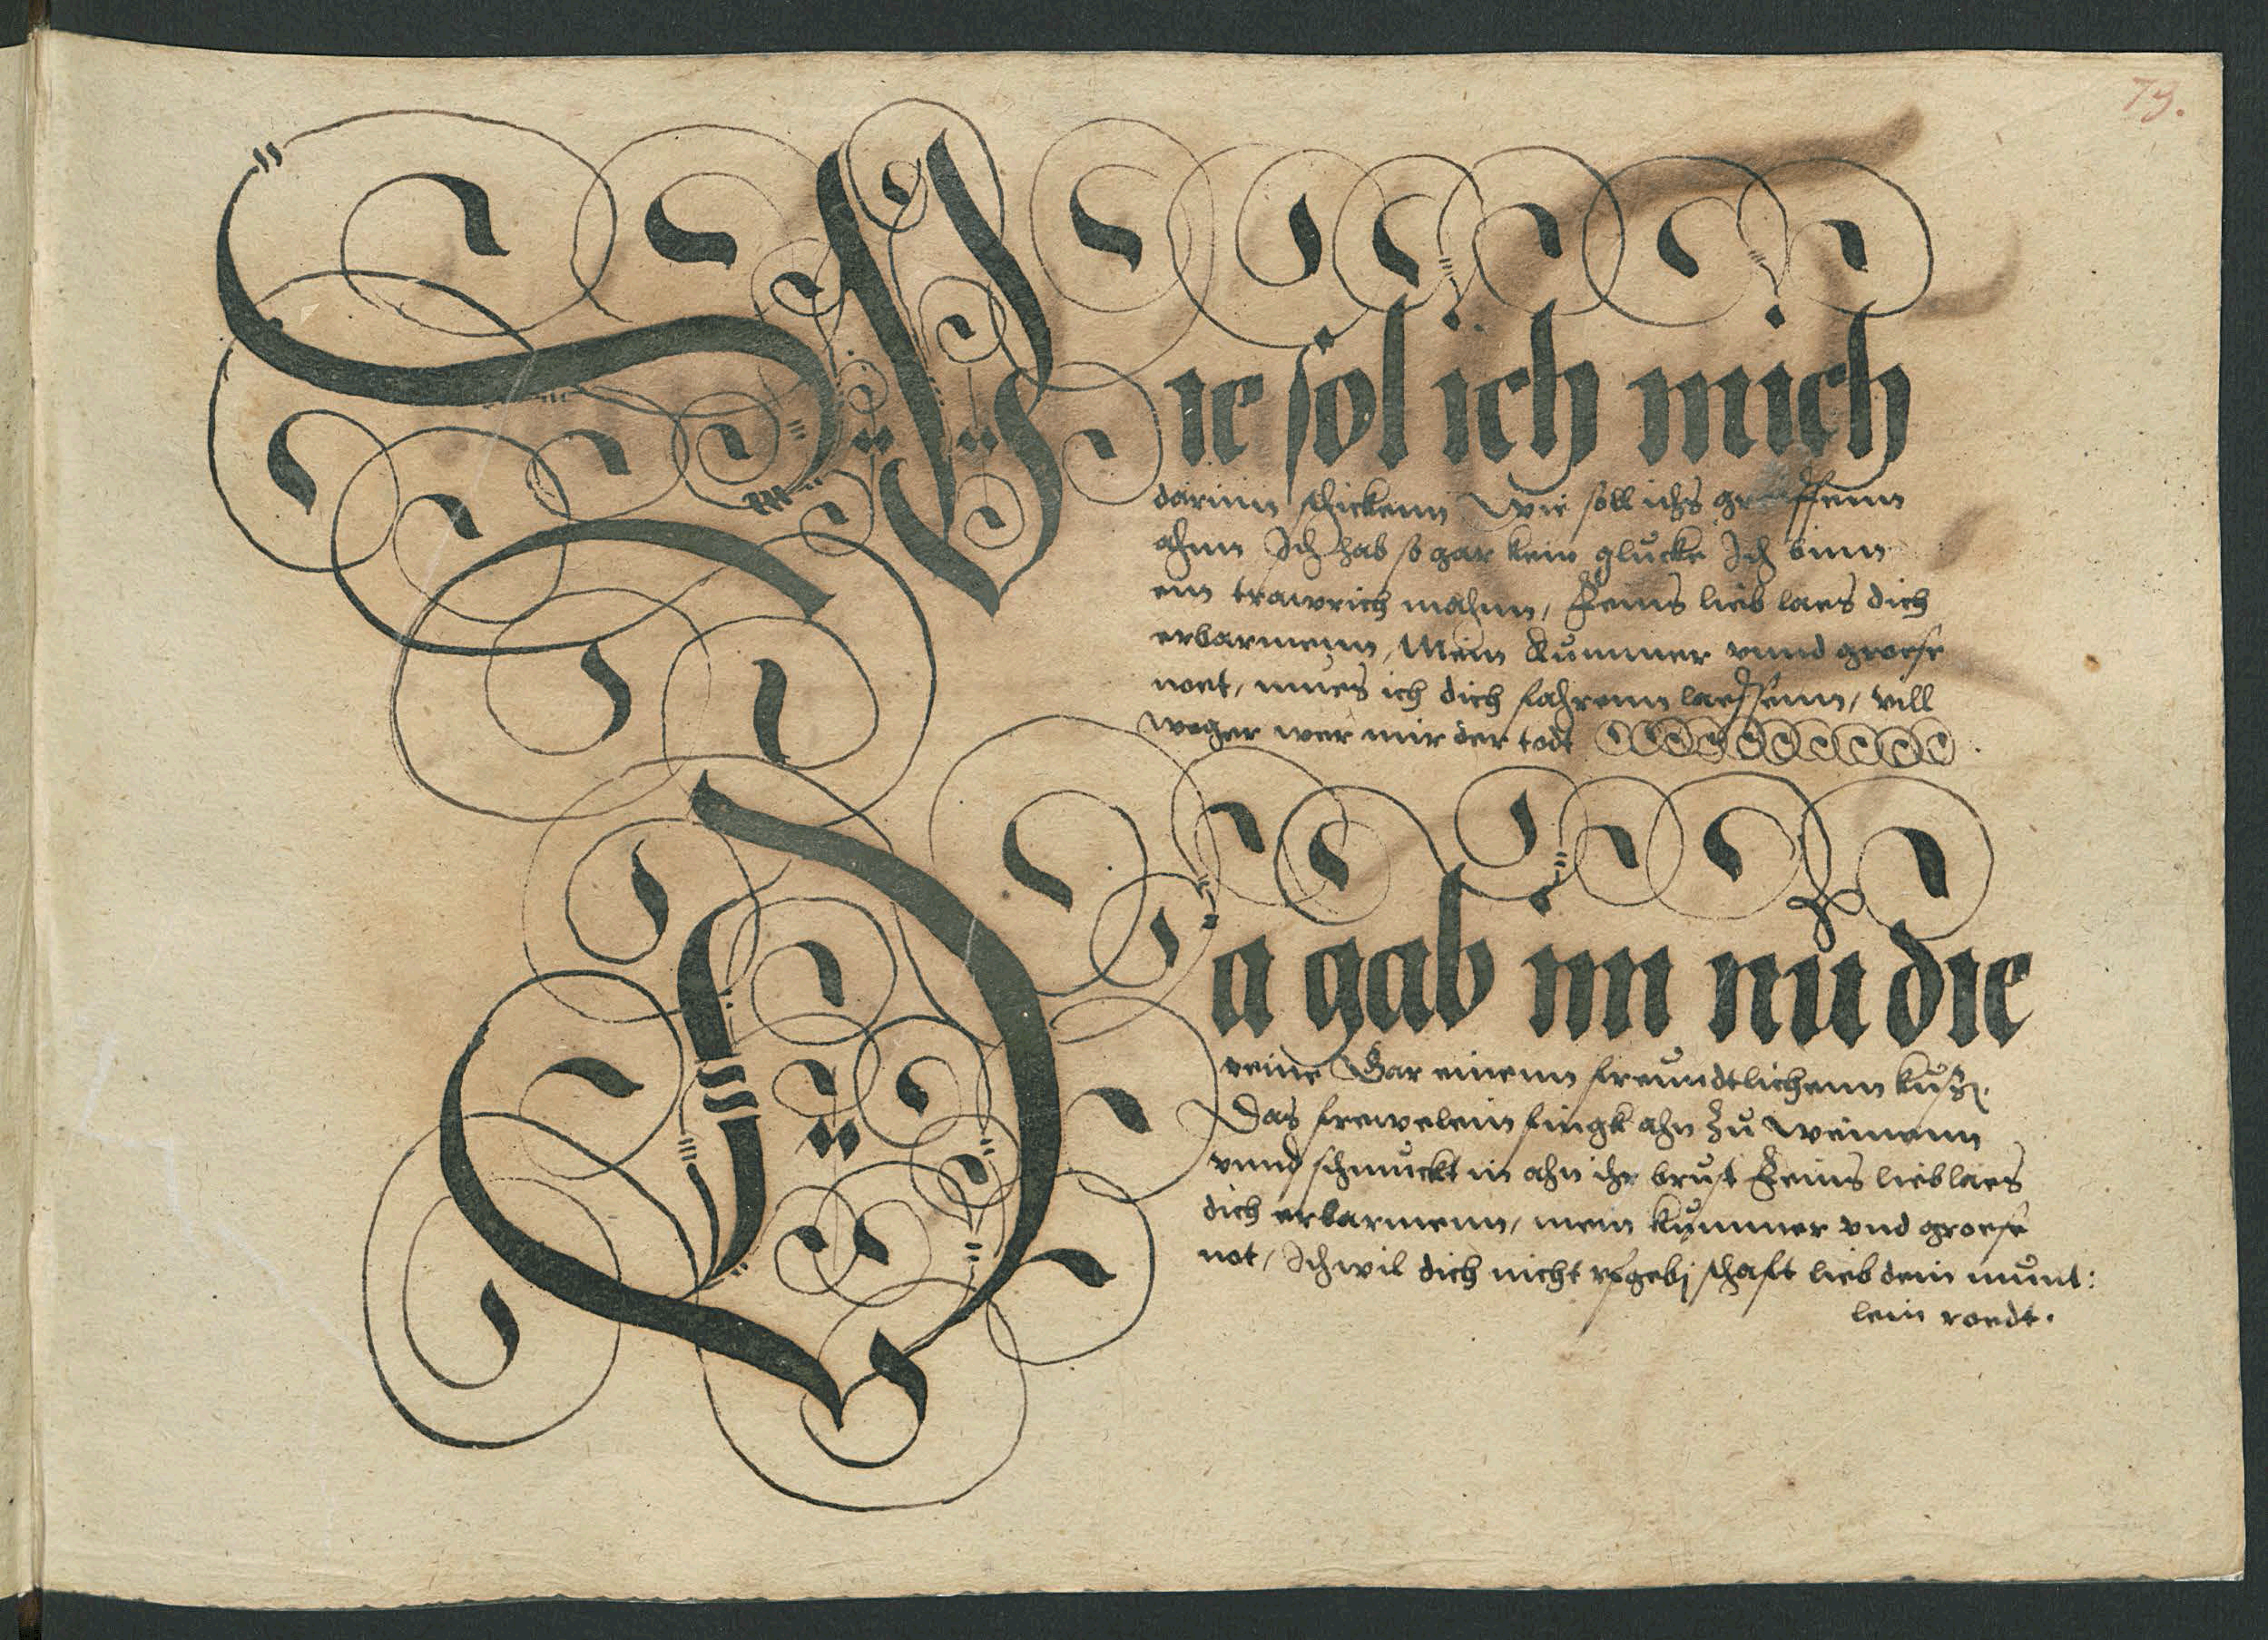 73.
Wie sol ich mich
darinn schickenn Wie soll ichs greiffenn
ahnn Ich hab so gar kein glucke Ich binn
ein trawrich mahnn, Feins lieb laes dich
erbarmenn, Mein Kummer vnnd groese
noet, mues ich dich fahrenn laessenn, vill
weger wer mir der todt
Da gab im nu die
reine Gar einenn freundtlichenn kuß.
Das frewelein fingk ahn zu weinenn
vnnd schmuckt in ahn ihr brust Feins lieb laes
dich erbarmenn, mein kummer vnd groese
not, Ich wil dich nicht schafft lieb dein munt:
lein roedt.